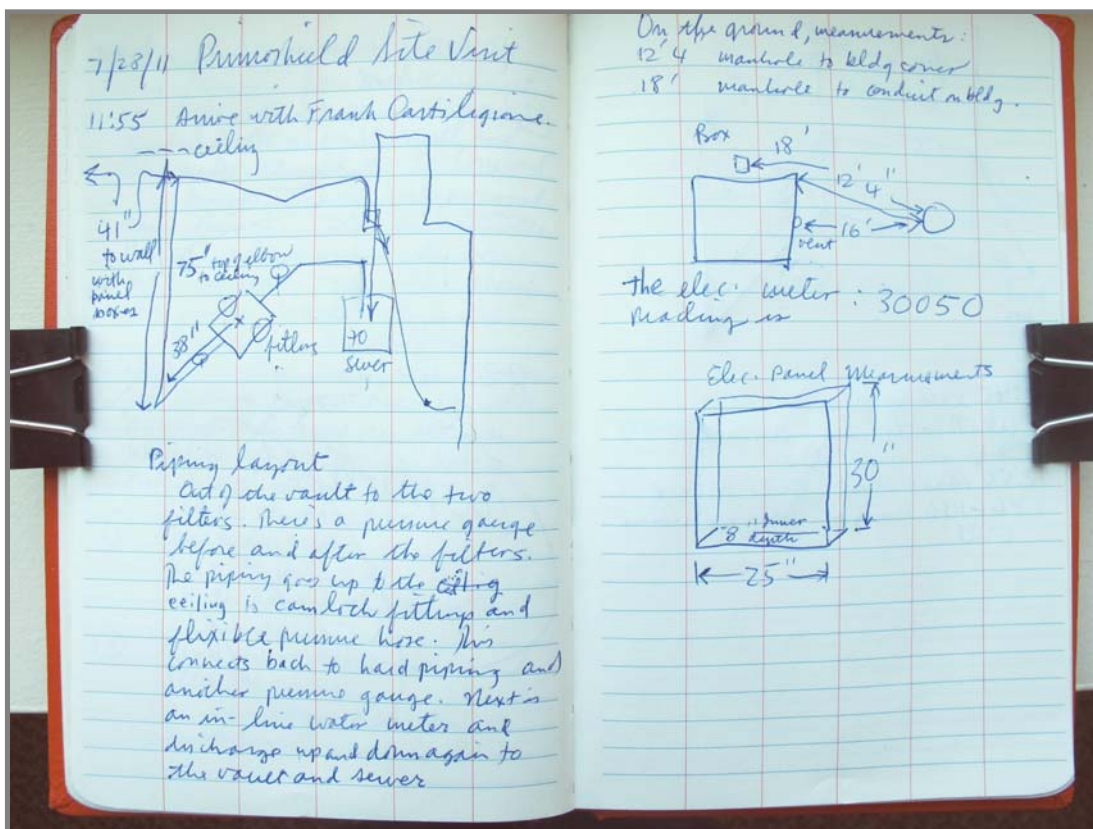 7/28/11 Pumoshield Site Visit
11:55 Arrive with Frank Castiligione.
---ceiling
41"
to wall
with
panel
boxes
75" top of elbow
to ceiling
38"
fitting
70
Sewer
Piping layout
Out of the vault to the two
filters. There's a pressure gauge
before and after the filters.
The piping goes up to the
ceiling is camlock fittings and
flixible pressure hose. This
connects back to hard piping and
another pressure gauge. Next is
an in-line water meter and
discharge up and down again to
the vault and sewer
On the ground, measurements:
12'4 manhole to bldg corner
18' manhole to conduit on bldg.
Box
18'
12' 4"
16'
vent
the elec. meter : 30050
reading is
Elec. Panel Measurements
30"
8" Inner
depth
25"